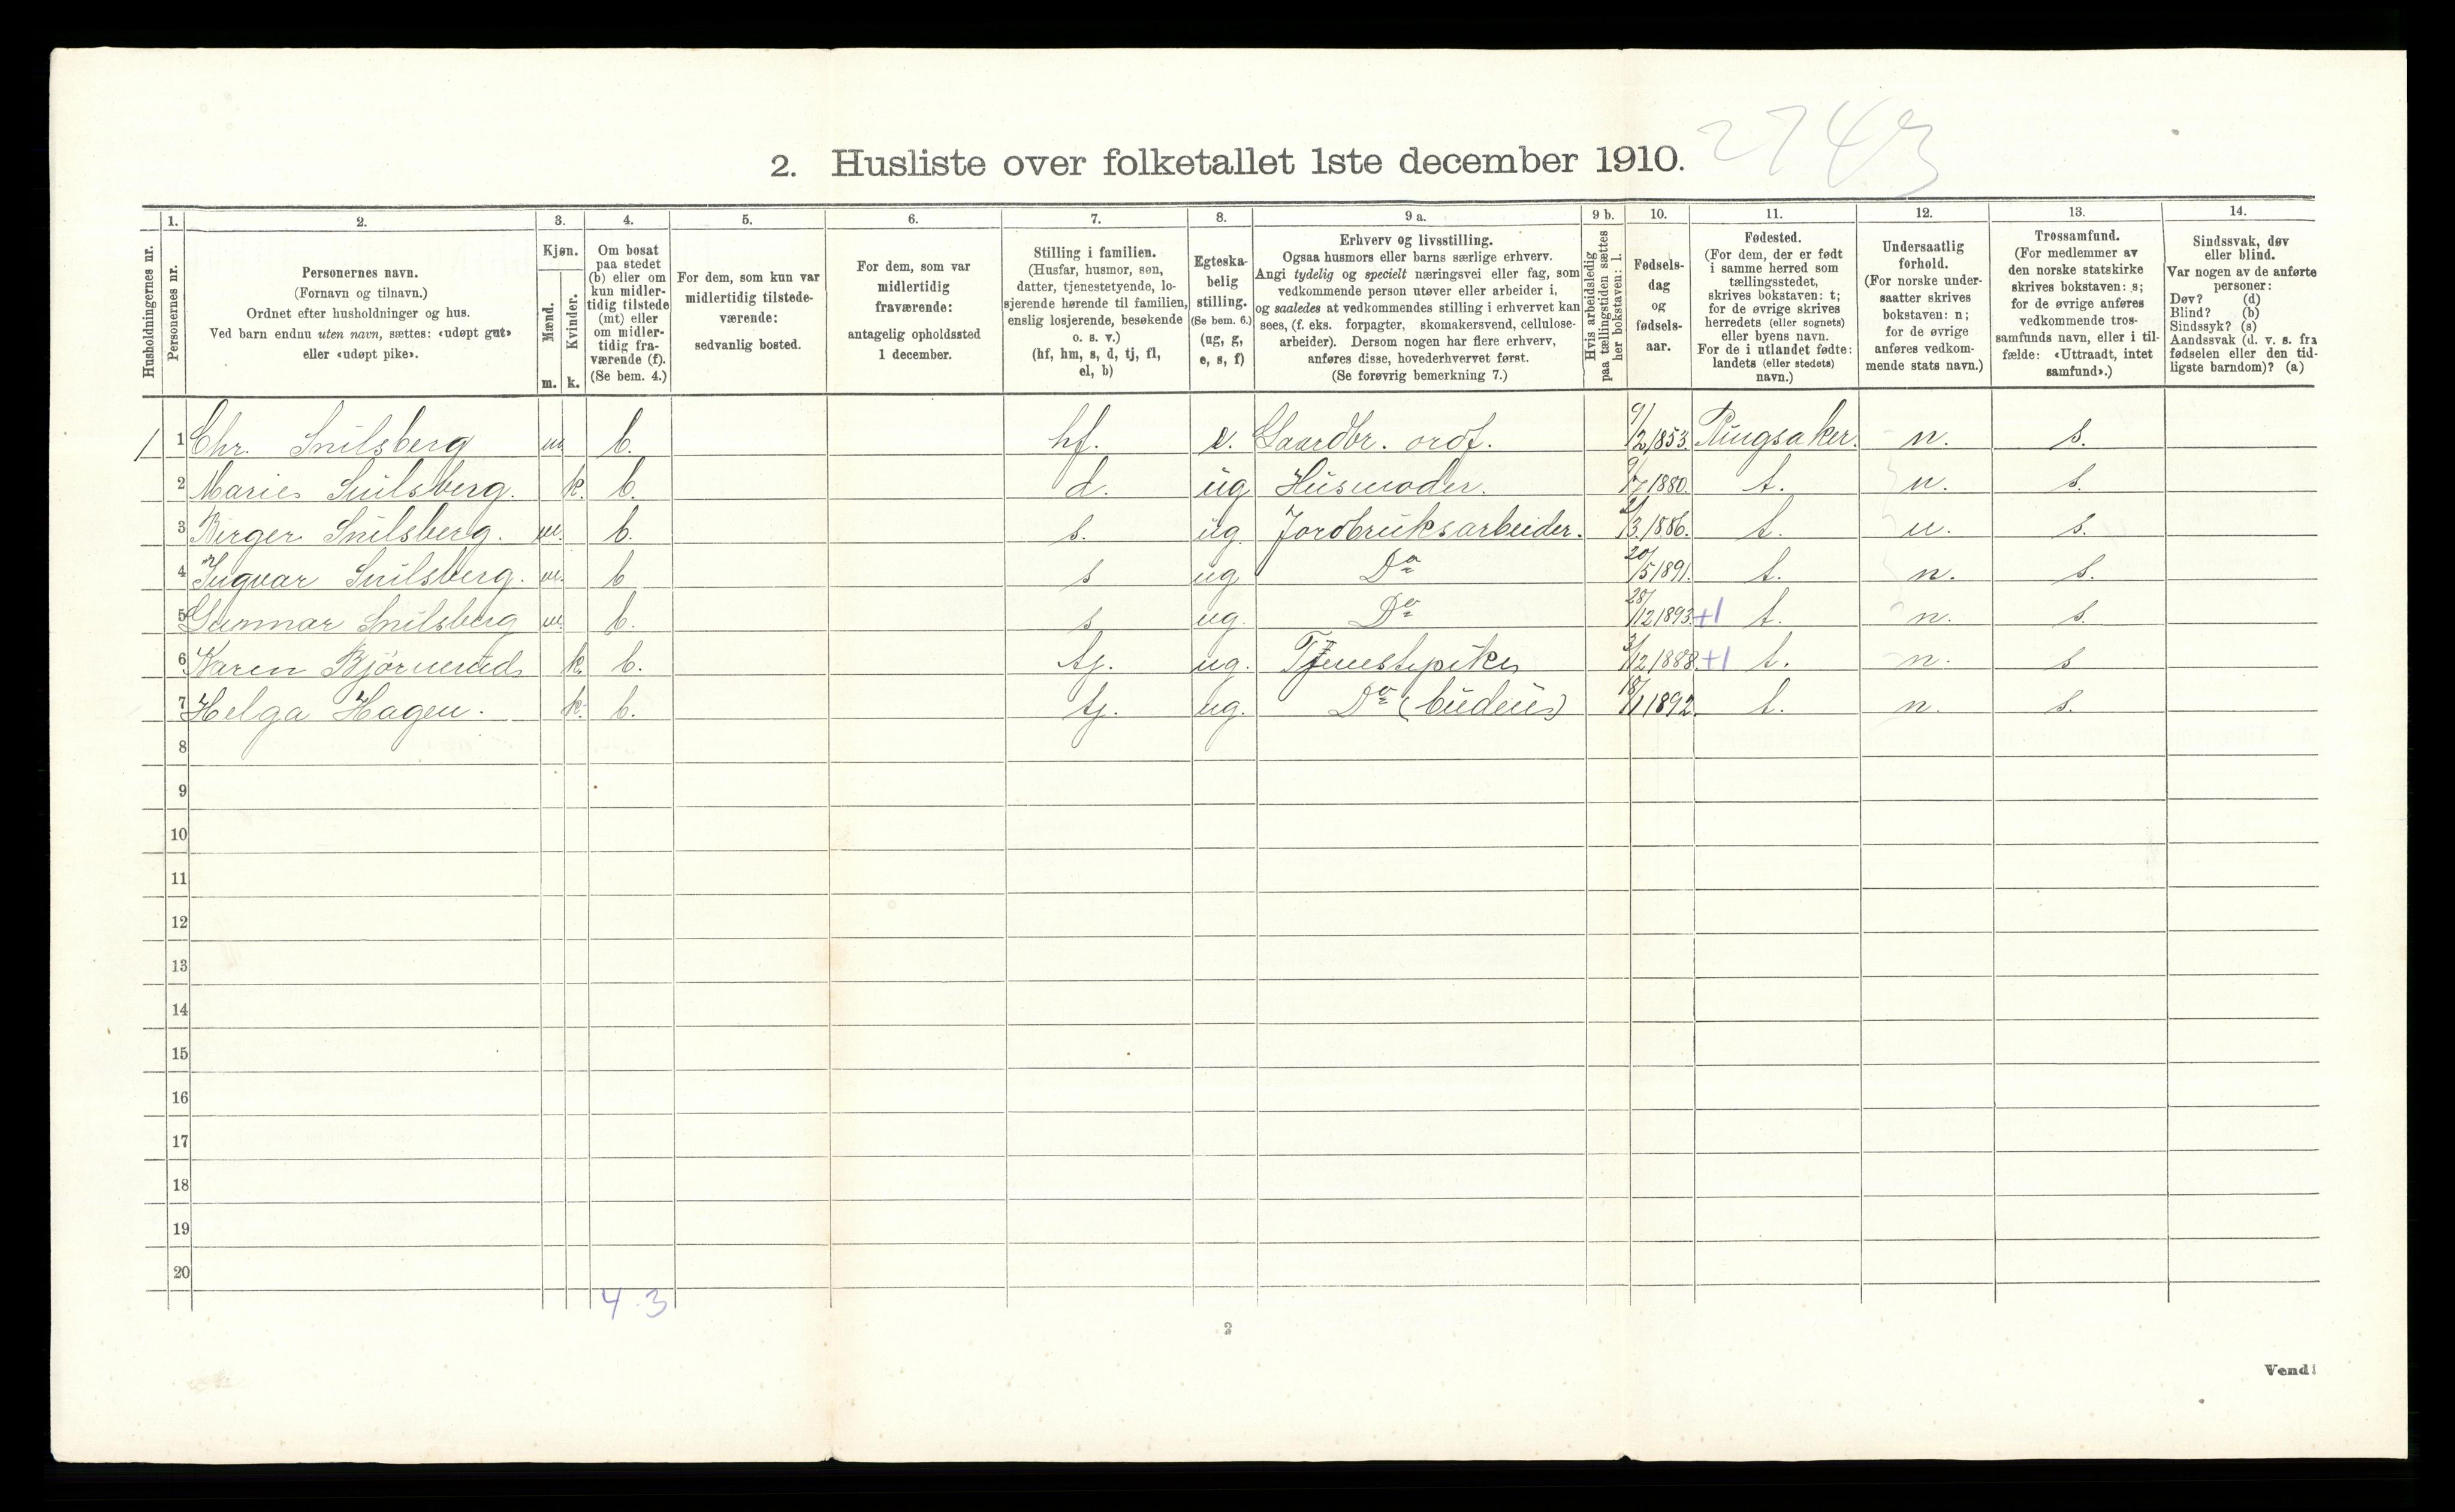 2. Husliste over folketallet 1ste december 1910. 2743
1. 2. 3. 4. 5. 6. 7. 8. 9 a. 9 b. 10. 11. 12. 13. 14.
Husholdningernes nr.
Personernes nr.
Personernes navn.
(Fornavn og tilnavn.)
Ordnet efter husholdninger og hus.
Ved barn endnu uten navn, sættes: «udøpt gut»
eller «udøpt pike».
Kjøn.
Mænd.
Kvinder.
m. k.
Om bosat
paa stedet
(b) eller om
kun midler-
tidig tilstede
(mt) eller
om midler-
tidig fra-
værende (f).
(Se bem. 4.)
For dem, som kun var
midlertidig tilstede-
værende:
sedvanlig bosted.
For dem, som var
midlertidig
fraværende:
antagelig opholdssted
1 december.
Stilling i familien.
(Husfar, husmor, søn,
datter, tjenestetyende, lo-
sjerende hørende til familien,
enslig losjerende, besøkende
o. s. v.)
(hf, hm, s, d, tj, fl,
el, b)
Egteska-
belig
stilling.
(Se bem. 6.)
(ug, g,
e, s, f)
Erhverv og livsstilling.
Ogsaa husmors eller barns særlige erhverv.
Angi tydelig og specielt næringsvei eller fag, som
vedkommende person utøver eller arbeider i,
og saaledes at vedkommendes stilling i erhvervet kan
sees, (f. eks. forpagter, skomakersvend, cellulose-
arbeider). Dersom nogen har flere erhverv,
anføres disse, hovederhvervet først.
(Se forøvrig bemerkning 7.)
Hvis arbeidsledig
paa tællingstiden sættes
her bokstaven: l.
Fødsels-
dag
og
fødsels-
aar.
Fødested.
(For dem, der er født
i samme herred som
tællingsstedet,
skrives bokstaven: t;
for de øvrige skrives
herredets (eller sognets)
eller byens navn.
For de i utlandet fødte:
landets (eller stedets)
navn.)
Undersaatlig
forhold.
(For norske under-
saatter skrives
bokstaven: n;
for de øvrige
anføres vedkom-
mende stats navn.)
Trossamfund.
(For medlemmer av
den norske statskirke
skrives bokstaven: s;
for de øvrige anføres
vedkommende tros-
samfunds navn, eller i til-
fælde: «Uttraadt, intet
samfund».)
Sindssvak, døv
eller blind.
Var nogen av de anførte
personer:
Døv? (d)
Blind? (b)
Sindssyk? (s)
Aandssvak (d. v. s. fra
fødselen eller den tid-
ligste barndom)? (a)
1 1 Chr. Snilsberg m. b. hf. e. Gaardbr. ordf. 9/12 1853. Ringsaker. n. s.
2 Marie Snilsberg. k. b. d. ug Husmoder. 9/7 1880. t. n. s.
3 Birger Snilsberg. m. b. s. ug. Jordbruksarbeider. /3. 1886. t. n. s.
4 Ingvar Snilsberg. m. b s ug Do 20/5 1891. t. n. s.
5 Gunnar Snilsberg m. b. s ug. Do 28/12 1893 +1 t. n. s.
6 Karen Bjørnerud k. b. tj. ug. Tjenestepike 3/12 1888. +1 t. n. s
7 Helga Hagen. k. b. tj. ug. Do (budeie) 18/1 1892. t. n. s.
8
9
10
11
12
13
14
15
16
17
18
19
20
4 . 3
2
Vend!